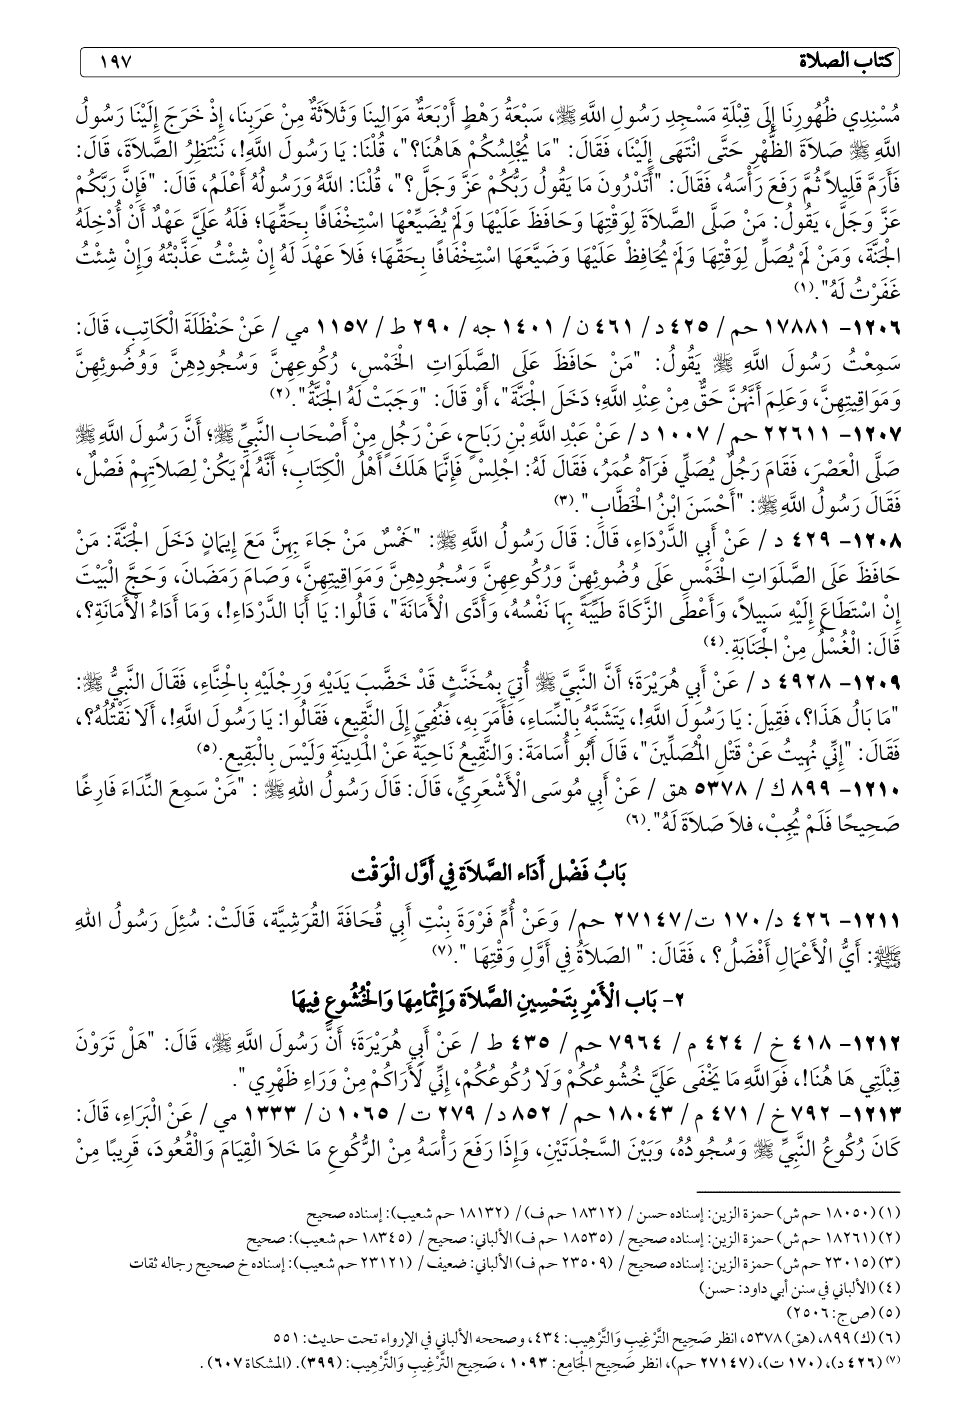 كتاب الصلاة ١٩٧
مُسْنِدِي ظُهُورِنَا إِلَى قِبْلَةِ مَسْجِدِ رَسُولِ اللَّهِ ﷺ، سَبْعَةُ رَهْطٍ أَرْبَعَةٌ مَوَالِينَا وَثَلَاثَةٌ مِنْ عَرَبِنَا، إِذْ خَرَجَ إِلَيْنَا رَسُولُ
اللَّهِ ﷺ صَلَاةَ الظُّهْرِ حَتَّى انْتَهَى إِلَيْنَا، فَقَالَ: "مَا يُجْلِسُكُمْ هَاهُنَا؟"، قُلْنَا: يَا رَسُولَ اللَّهِ!، نَنْتَظِرُ الصَّلَاةَ، قَالَ:
فَأَرَمَّ قَلِيلاً ثُمَّ رَفَعَ رَأْسَهُ، فَقَالَ: "أَتَدْرُونَ مَا يَقُولُ رَبُّكُمْ عَزَّ وَجَلَّ؟"، قُلْنَا: اللَّهُ وَرَسُولُهُ أَعْلَمُ، قَالَ: "فَإِنَّ رَبَّكُمْ
عَزَّ وَجَلَّ، يَقُولُ: مَنْ صَلَّى الصَّلَاةَ لِوَقْتِهَا وَحَافَظَ عَلَيْهَا وَلَمْ يُضَيِّعْهَا اسْتِخْفَافًا بِحَقِّهَا؛ فَلَهُ عَلَيَّ عَهْدٌ أَنْ أُدْخِلَهُ
الْجَنَّةَ، وَمَنْ لَمْ يُصَلِّ لِوَقْتِهَا وَلَمْ يُحَافِظْ عَلَيْهَا وَضَيَّعَهَا اسْتِخْفَافًا بِحَقِّهَا؛ فَلاَ عَهْدَ لَهُ إِنْ شِئْتُ عَذَّبْتُهُ وَإِنْ شِئْتُ
غَفَرْتُ لَهُ".(١)
١٢٠٦- ١٧٨٨١ حم/ ٤٢٥ د/ ٤٦١ ن/ ١٤٠١ جه/ ٢٩٠ ط/ ١١٥٧ مي/ عَنْ حَنْظَلَةَ الْكَاتِبِ، قَالَ:
سَمِعْتُ رَسُولَ اللَّهِ ﷺ يَقُولُ: "مَنْ حَافَظَ عَلَى الصَّلَوَاتِ الْخَمْسِ، رُكُوعِهِنَّ وَسُجُودِهِنَّ وَوُضُوئِهِنَّ
وَمَوَاقِيتِهِنَّ، وَعَلِمَ أَنَّهُنَّ حَقٌّ مِنْ عِنْدِ اللَّهِ؛ دَخَلَ الْجَنَّةَ"، أَوْ قَالَ: "وَجَبَتْ لَهُ الْجَنَّةُ".(٢)
١٢٠٧- ٢٢٦١١ حم/ ١٠٠٧ د/ عَنْ عَبْدِ اللَّهِ بْنِ رَبَاحٍ، عَنْ رَجُلٍ مِنْ أَصْحَابِ النَّبِيِّ ﷺ؛ أَنَّ رَسُولَ اللَّهِ ﷺ
صَلَّى الْعَصْرَ، فَقَامَ رَجُلٌ يُصَلِّي فَرَآهُ عُمَرُ، فَقَالَ لَهُ: اجْلِسْ فَإِنَّمَا هَلَكَ أَهْلُ الْكِتَابِ؛ أَنَّهُ لَمْ يَكُنْ لِصَلاَتِهِمْ فَصْلٌ،
فَقَالَ رَسُولُ اللَّهِ ﷺ: "أَحْسَنَ ابْنُ الْخَطَّابِ".(٣)
١٢٠٨- ٤٢٩ د/ عَنْ أَبِي الدَّرْدَاءِ، قَالَ: قَالَ رَسُولُ اللَّهِ ﷺ: "خَمْسٌ مَنْ جَاءَ بِهِنَّ مَعَ إِيمَانٍ دَخَلَ الْجَنَّةَ: مَنْ
حَافَظَ عَلَى الصَّلَوَاتِ الْخَمْسِ عَلَى وُضُوئِهِنَّ وَرُكُوعِهِنَّ وَسُجُودِهِنَّ وَمَوَاقِيتِهِنَّ، وَصَامَ رَمَضَانَ، وَحَجَّ الْبَيْتَ
إِنْ اسْتَطَاعَ إِلَيْهِ سَبِيلاً، وَأَعْطَى الزَّكَاةَ طَيِّبَةً بِهَا نَفْسُهُ، وَأَدَّى الْأَمَانَةَ"، قَالُوا: يَا أَبَا الدَّرْدَاءِ!، وَمَا أَدَاءُ الْأَمَانَةِ؟،
قَالَ: الْغُسْلُ مِنْ الْجَنَابَةِ.(٤)
١٢٠٩- ٤٩٢٨ د/ عَنْ أَبِي هُرَيْرَةَ؛ أَنَّ النَّبِيَّ ﷺ أُتِيَ بِمُخَنَّثٍ قَدْ خَضَّبَ يَدَيْهِ وَرِجْلَيْهِ بِالْحِنَّاءِ، فَقَالَ النَّبِيُّ ﷺ:
"مَا بَالُ هَذَا؟، فَقِيلَ: يَا رَسُولَ اللَّهِ!، يَتَشَبَّهُ بِالنِّسَاءِ، فَأَمَرَ بِهِ، فَنُفِيَ إِلَى النَّقِيعِ، فَقَالُوا: يَا رَسُولَ اللَّهِ!، أَلاَ نَقْتُلُهُ؟،
فَقَالَ: "إِنِّي نُهِيتُ عَنْ قَتْلِ الْمُصَلِّينَ"، قَالَ أَبُو أُسَامَةَ: وَالنَّقِيعُ نَاحِيَةٌ عَنْ الْمَدِينَةِ وَلَيْسَ بِالْبَقِيعِ.(٥)
١٢١٠- ٨٩٩ ك/ ٥٣٧٨ هق/ عَنْ أَبِي مُوسَى الْأَشْعَرِيِّ، قَالَ: قَالَ رَسُولُ اللهِ ﷺ : "مَنْ سَمِعَ النِّدَاءَ فَارِغًا
صَحِيحًا فَلَمْ يُجِبْ، فَلاَ صَلاَةَ لَهُ".(٦)
بَابُ فَضْل أَدَاء الصَّلاَة فِي أَوَّل الْوَقْت
١٢١١- ٤٢٦ د/ ١٧٠ ت/ ٢٧١٤٧ حم/ وَعَنْ أُمِّ فَرْوَةَ بِنْتِ أَبِي قُحَافَةَ القُرَشِيَّة، قَالَتْ: سُئِلَ رَسُولُ اللهِ
ﷺ: أَيُّ الْأَعْمَالِ أَفْضَلُ؟ ، فَقَالَ: " الصَلَاةُ فِي أَوَّلِ وَقْتِهَا ".(٧)
٢- بَاب الْأَمْرِ بِتَحْسِينِ الصَّلَاة وَإِتْمَامِهَا وَالْخُشُوعِ فِيهَا
١٢١٢- ٤١٨ خ/ ٤٢٤ م/ ٧٩٦٤ حم/ ٤٣٥ ط/ عَنْ أَبِي هُرَيْرَةَ؛ أَنَّ رَسُولَ اللَّهِ ﷺ، قَالَ: "هَلْ تَرَوْنَ
قِبْلَتِي هَا هُنَا!، فَوَاللَّهِ مَا يَخْفَى عَلَيَّ خُشُوعُكُمْ وَلَا رُكُوعُكُمْ، إِنِّي لَأَرَاكُمْ مِنْ وَرَاءِ ظَهْرِي ".
١٢١٣- ٧٩٢ خ/ ٤٧١ م/ ١٨٠٤٣ حم/ ٨٥٢ د/ ٢٧٩ ت/ ١٠٦٥ ن/ ١٣٣٣ مي/ عَنْ الْبَرَاءِ، قَالَ:
كَانَ رُكُوعُ النَّبِيِّ ﷺ وَسُجُودُهُ، وَبَيْنَ السَّجْدَتَيْنِ، وَإِذَا رَفَعَ رَأْسَهُ مِنْ الرُّكُوعِ مَا خَلاَ الْقِيَامَ وَالْقُعُودَ، قَرِيبًا مِنْ
(١) (١٨٠٥٠ حم ش) حمزة الزين: إسناده حسن/ (١٨٣١٢ حم ف)/ (١٨١٣٢ حم شعيب): إسناده صحيح
(٢) (١٨٢٦١ حم ش) حمزة الزين: إسناده صحيح/ (١٨٥٣٥ حم ف) الألباني: صحيح/ (١٨٣٤٥ حم شعيب): صحيح
(٣) (٢٣٠١٥ حم ش) حمزة الزين: إسناده صحيح/ (٢٣٥٠٩ حم ف) الألباني: ضعيف/ (٢٣١٢١ حم شعيب): إسناده خ صحيح رجاله ثقات
(٤) (الألباني في سنن أبي داود: حسن)
(٥) (ص ج: ٢٥٠٦)
(٦) (ك) ٨٩٩، (هق) ٥٣٧٨، انظر صَحِيح التَّرْغِيبِ وَالتَّرْهِيب: ٤٣٤، وصححه الألباني في الإرواء تحت حديث: ٥٥١
(٧) (٤٢٦ د)، (١٧٠ ت)، (٢٧١٤٧ حم)، انظر صَحِيح الْجَامِع: ١٠٩٣ ، صَحِيح التَّرْغِيبِ وَالتَّرْهِيب: (٣٩٩). (المشكاة ٦٠٧) .